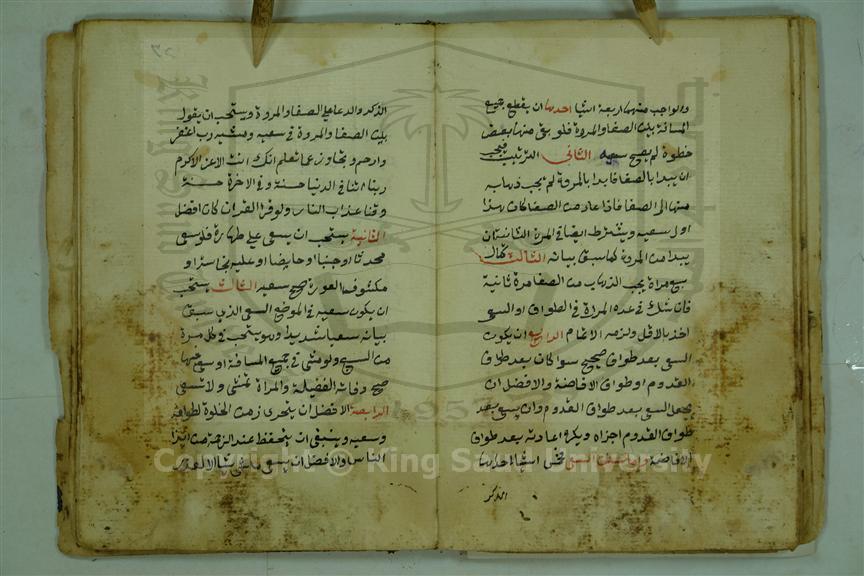 والواجب منهما اربعة اشيا احدها ان يقطع جميع
المسافة بين الصفا والمروة فلو بقي منها بعض
خطوة لم يصح سعيه الثاني الترتيب فيجب
ان يبدا بالصفا فان بدا بالمروة لم يحسب ذهابه
منها الى الصفا فاذا عاد من الصفا كان هذا
اول سعيه ويشترط ايضا في المرة الثانية ان
يبدا من المروة كما سبق بيانه الثالث كمال
سبع مرات يحسب الذهاب من الصفا مرة ثانية
فان شك في عدد المرات في الطواف او السعي
اخذ بالاقل ولزمه الاتمام الرابع ان يكون
السعي بعد طواف صحيح سوا كان بعد طواف
القدوم او طواف الافاضة والافضل ان
يجعل السعي بعد طواف القدوم وان سعى بعد
طواف القدوم اجزاه ويكره اعادته بعد طواف
الافاضة واما سنن السعي فهي اشيا احدها
الذكر
الذكر والدعا على الصفا والمروة ويستحب ان يقول
بين الصفا والمروة في سعيه ومشيه رب اغفر
وارحم وتجاوز عما تعلم انك انت الاعز الاكرم
ربنا اتنا في الدنيا حسنة وفي الاخرة حسنة
وقنا عذاب الناس ولو قرا القران كان افضل
الثانية يستحب ان يسعى على طهارة فلو سعى
محدثا او جنبا او حايضا او عليه نجاسة او
مكشوف العورة صح سعيه الثالث يستحب
ان يكون سعيه في الموضع السعي الذي سبق
بيانه سعيا شديدا وهو يستحب في كل مرة
من السبع ولو مشى في جميع المسافة او سعى فيها
صح وفاته الفضيلة والمراة تمشي ولا تسعى
الرابعة الافضل ان يتحرى زمن الخلوة لطوافه
وسعيه وينبغي ان يتحفظ عند الزحمة من ايذا
الناس والافضل ان يسعى ماشيا
Copyright © King Saud University
1957